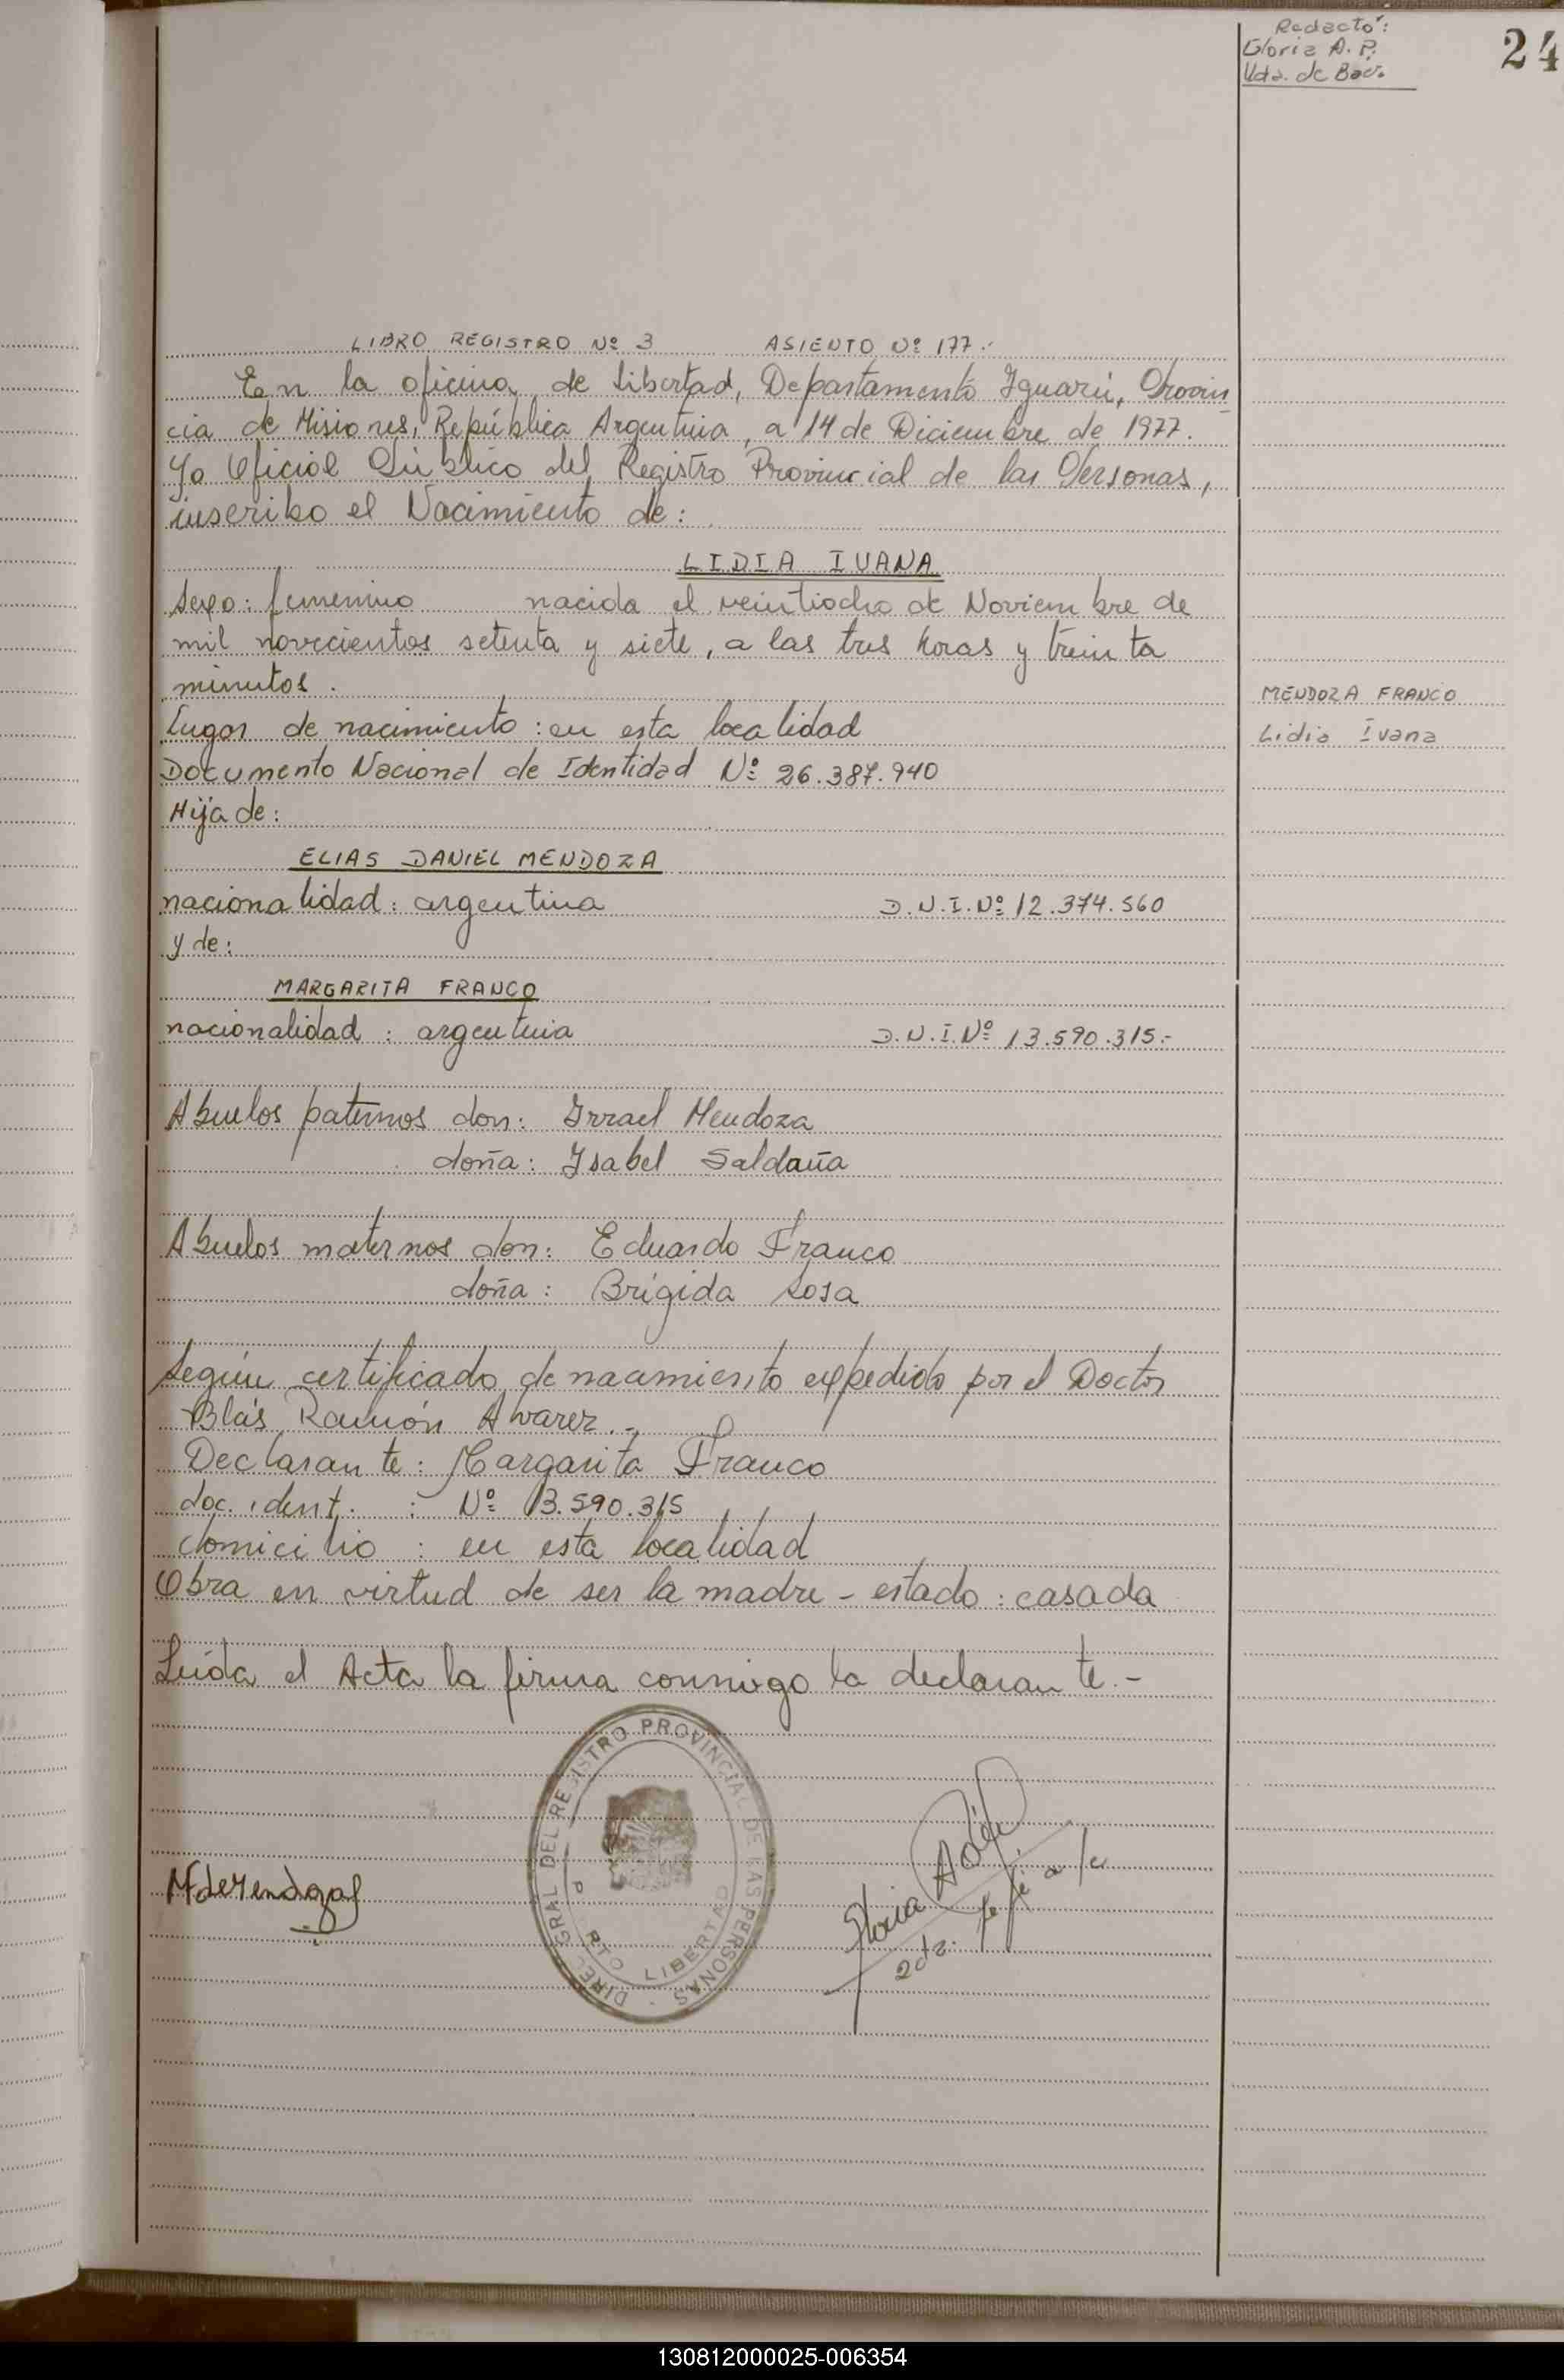 Redactó:
Gloria A. P.
Vda. de Báez.
24
LIBRO REGISTRO Nº 3 ASIENTO Nº 177.-
En la oficina de Libertad, Departamento Iguazú, Provin
cia de Misiones, República Argentina, a 14 de Diciembre de 1977.
Yo Oficial Público del Registro Provincial de las Personas,
inscribo el Nacimiento de:
LIDIA IVANA
Sexo: femenino nacida el veintiocho de Noviembre de
mil novecientos setenta y siete, a las tres horas y treinta
minutos.
MENDOZA FRANCO
Lidia Ivana
Lugar de nacimiento: en esta localidad
Documento Nacional de Identidad Nº 26.387.940
Hija de:
ELIAS DANIEL MENDOZA
nacionalidad: argentina D.N.I.Nº 12.374.560
y de:
MARGARITA FRANCO
nacionalidad: argentina D.N.I.Nº 13.590.315.-
Abuelos paternos don: Isrrael Mendoza
doña: Isabel Saldaña
Abuelos maternos don: Eduardo Franco
doña: Brígida Sosa
Según certificado de nacimiento expedido por el Doctor
Blás Ramón Alvarez.-
Declarante: Margarita Franco
doc. ident. : Nº 13.590.315
domicilio : en esta localidad
Obra en virtud de ser la madre - estado: casada
Leída el Acta la firma conmigo la declarante.-
DIREC. GRAL DEL REGISTRO PROVINCIAL DE LAS PERSONAS
PTO LIBERTAD
Gloria
130812000025-006354